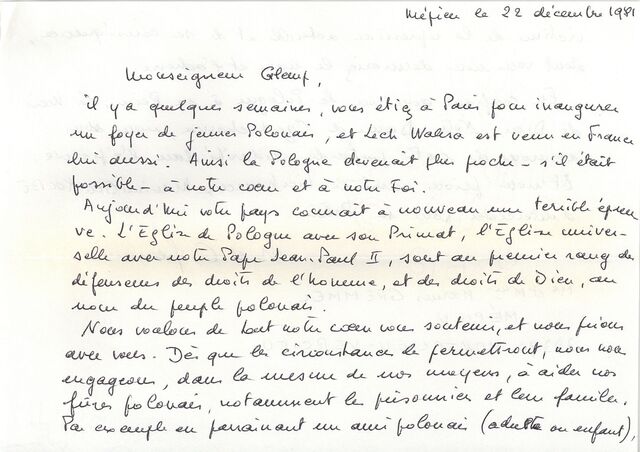 Mépieu le 22 décembre 1981
Monseigneur Glemp,
il y a quelques semaines, vous étiez à Paris pour inaugurer
un foyer de jeunes Polonais, et Lech Walesa est venu en France
lui aussi. Ainsi la Pologne devenait plus proche - s'il était
possible - à notre coeur et à notre Foi.
Aujourd'hui votre pays connaît à nouveau une terrible épreu
ve. L'Eglise de Pologne avec son Primat, l'Eglise univer-
selle avec notre Pape Jean-Paul II, sont au premier rang des
défenseurs des droits de l'homme, et des droits de Dieu, au
nom du peuple polonais.
Nous voulons de tout notre coeur vous soutenir, et nous prions
avec vous. Dès que les circonstances le permettront, nous nous
engageons, dans la mesure de nos moyens, à aider nos
frères polonais, notamment les prisonniers et leur famille.
Par exemple en parrainant un ami polonais (adulte ou enfant),